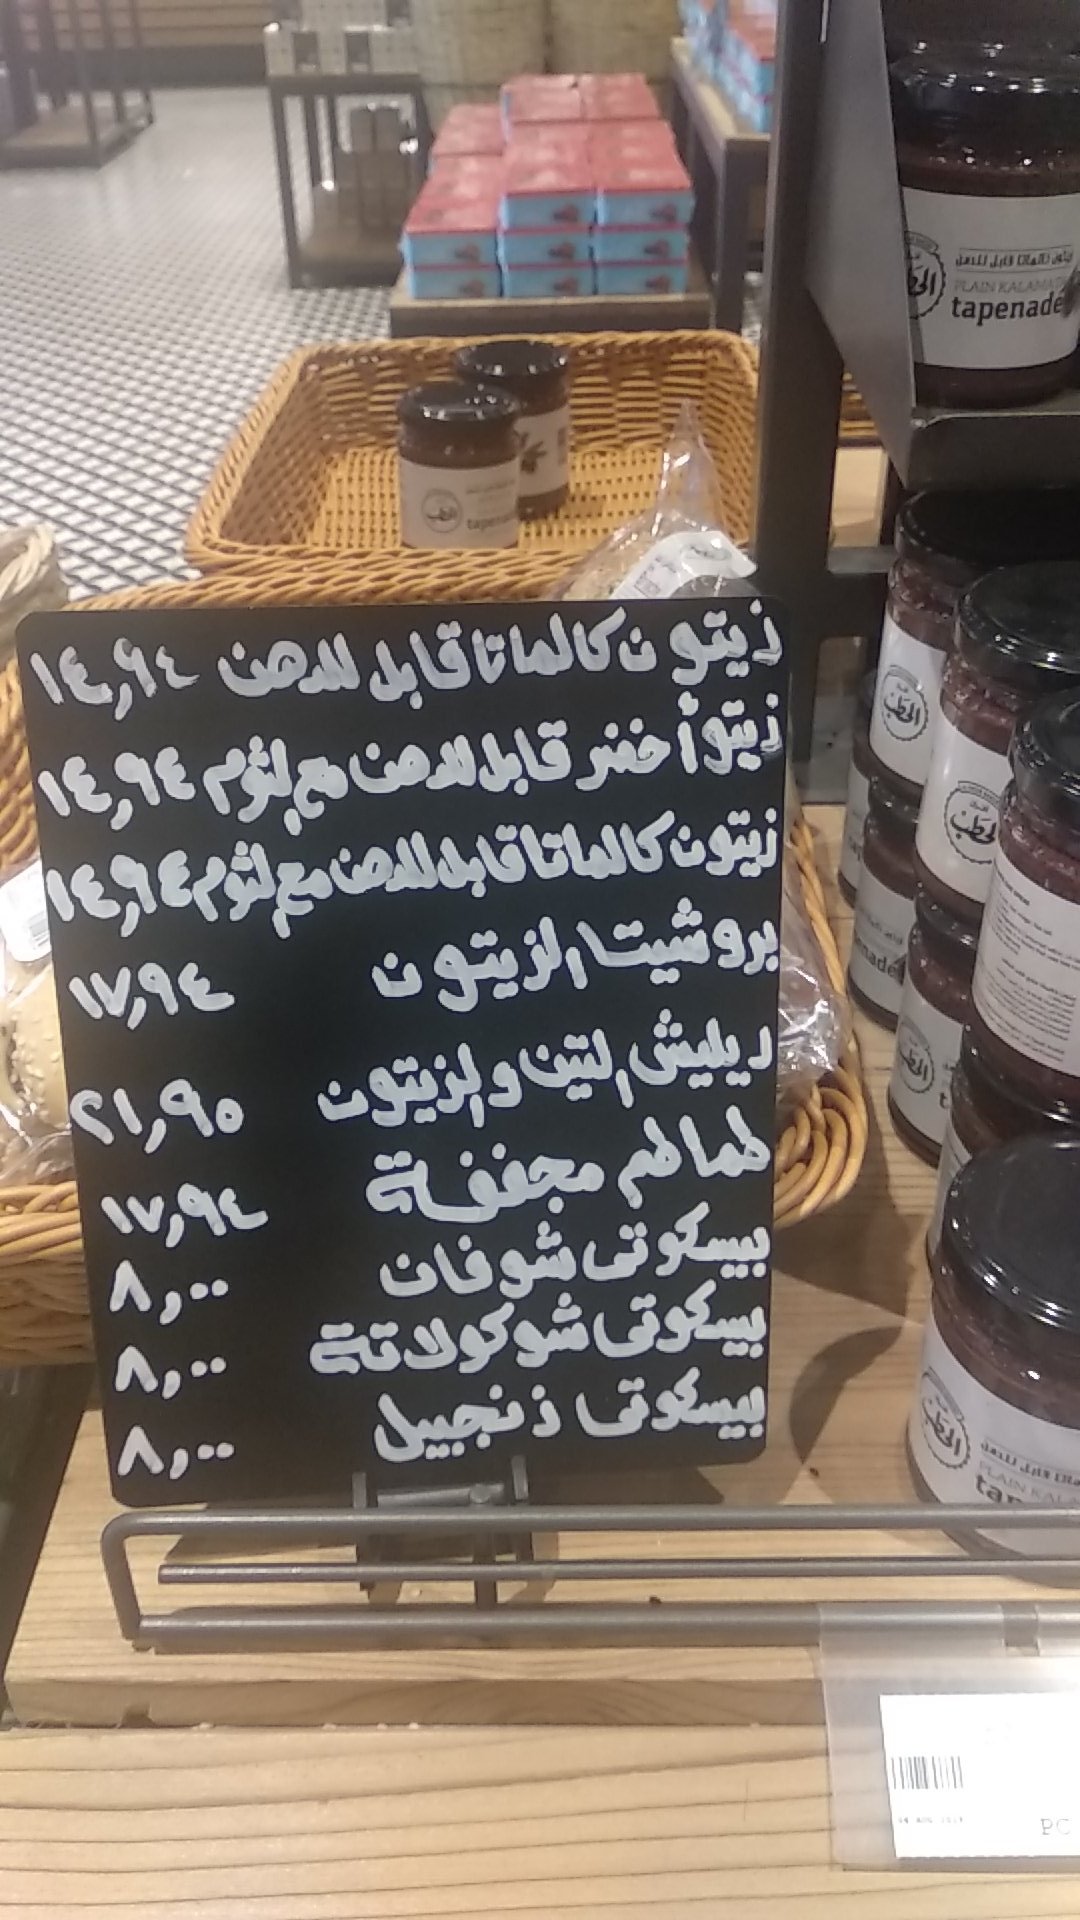 زيتون كالماتا قابل للدهن ١٤,٩٤
زيتو أخضر قابل للدهن مع لثوم ١٤,٩٤
زيتون كالماتا قابل للدهن مع لثوم ١٤,٩٤
بروشيتا الزيتون ١٧,٩٤
ريليش التين والزيتون ٢١,٩٥
طماطم مجففة ١٧,٩٤
بيسكوتي شوفان ٨,٠٠
بيسكوتي شوكولاتة ٨,٠٠
بيسكوتي زنجبيل ٨,٠٠
زيتون كالماتا قابل للدهن
PLAIN KALAMA
tapenade
الحطب
tapen
الحطب
الحطب
nade
الحطب
الحطب
قابل للدهن
PLAIN KALA
tap
PC